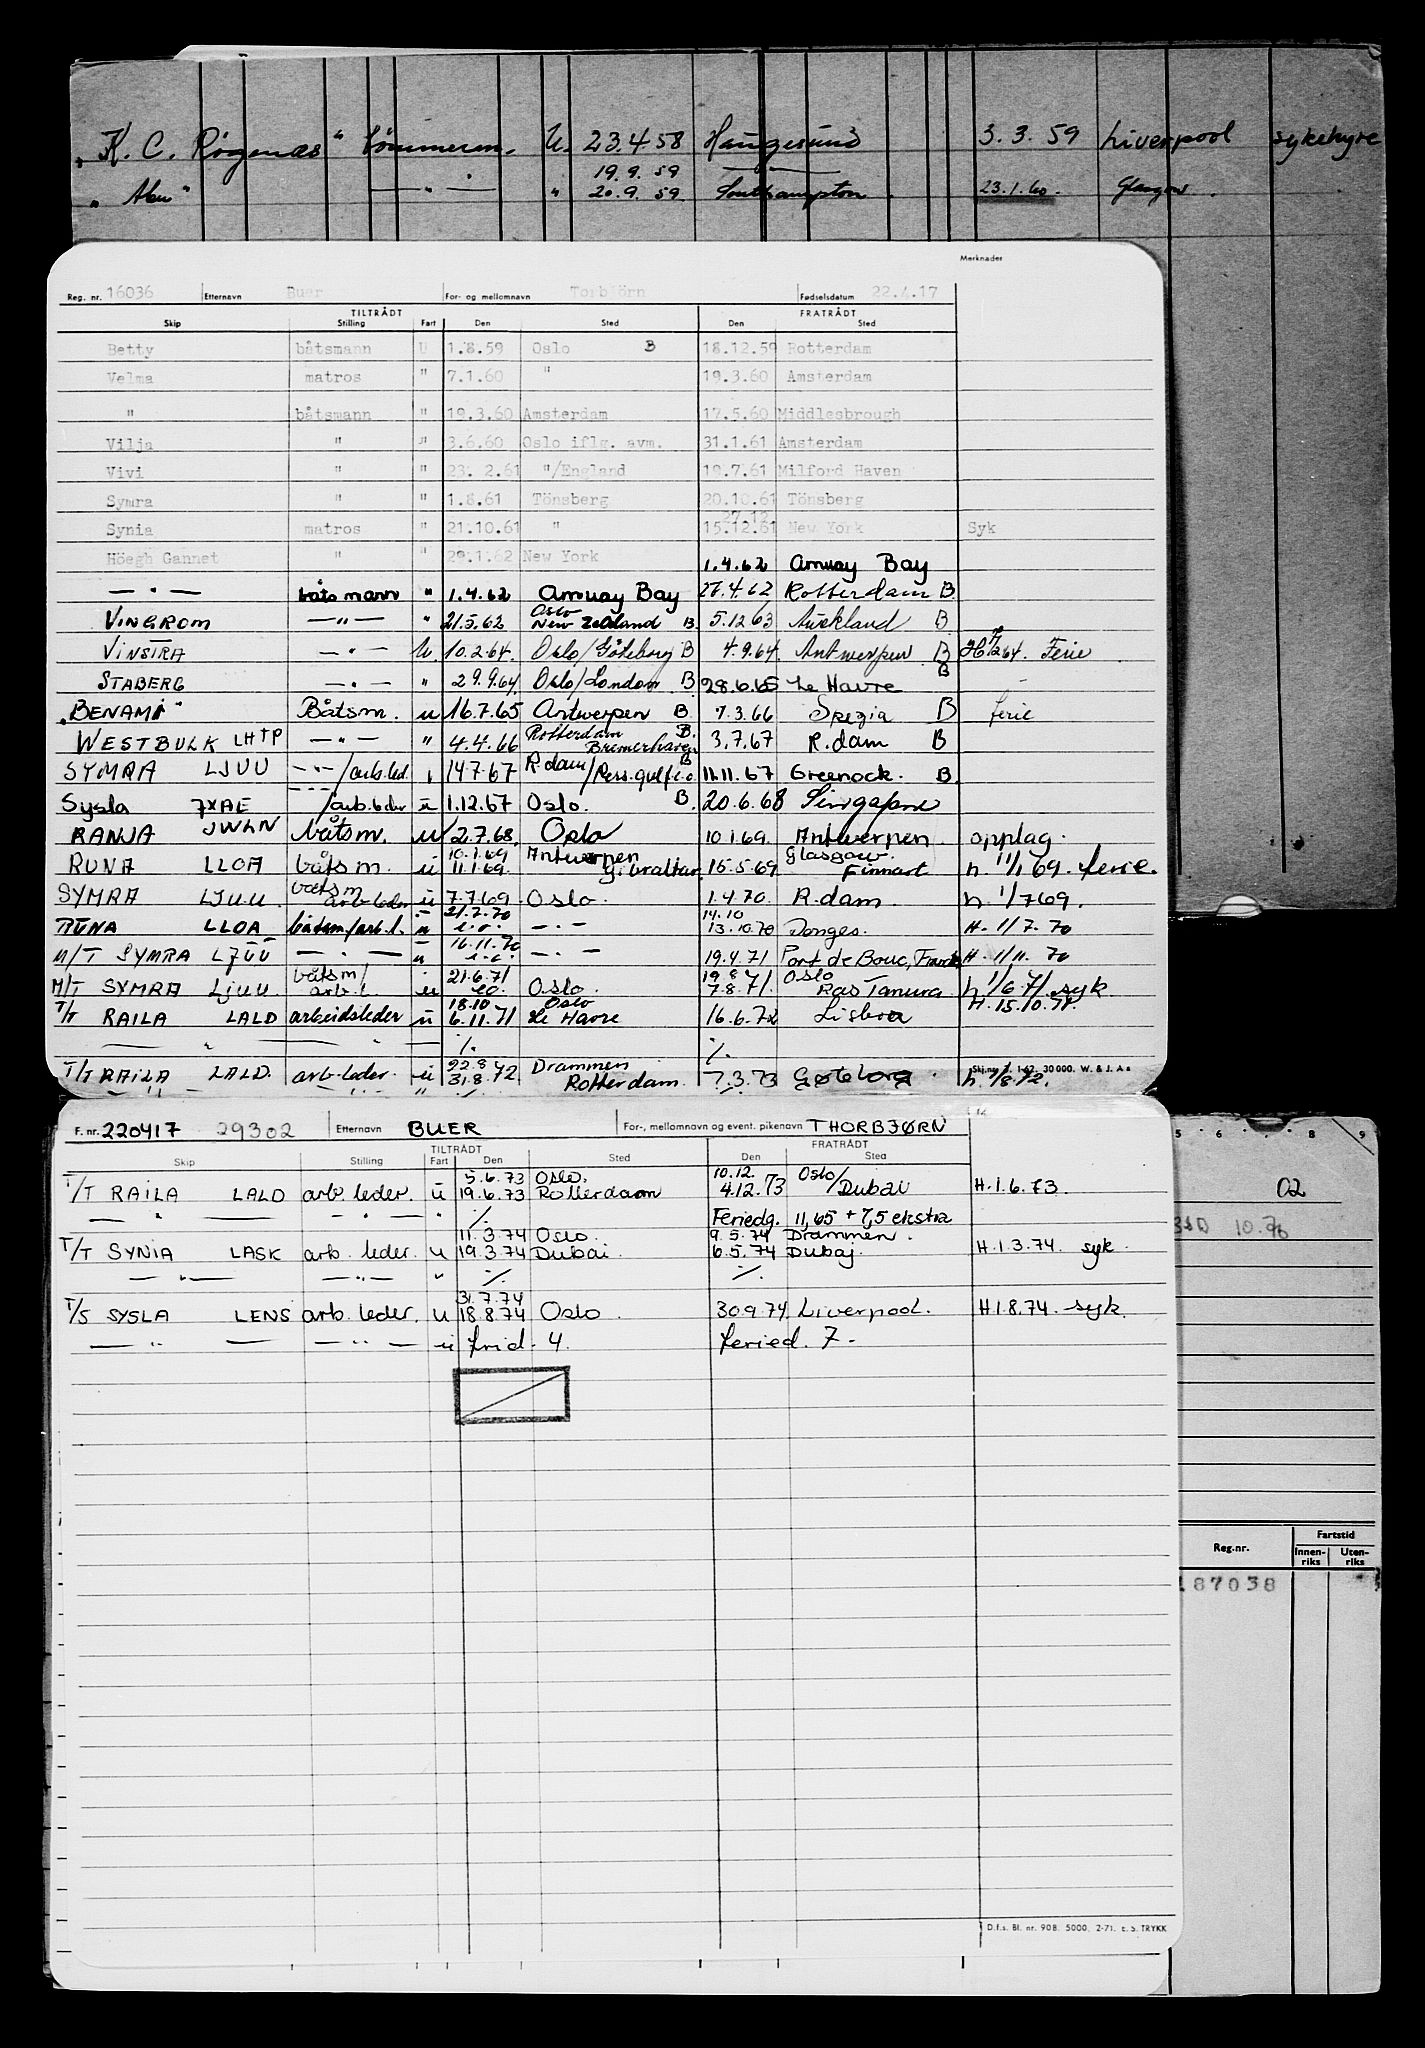 "K. C. Rogenæs" tømmerm. U. 23.4 58 Haugesund 3.3.59 Liverpool sykehyre
19.9.59
" — " — " 20.9.59 Southampton 23.1.60. Glasgow.
Merknader
Reg. nr. 16036 Etternavn Buer For- og mellomnavn Torbjörn Fødselsdatum 22.4.17
TILTRÅDT FRATRÅDT
Skip Stilling Fart Den Sted Den Sted
Betty båtsmann U 1.8.59 Oslo B 18.12.59 Rotterdam
Velma matros " 7.1.60 " 19.3.60 Amsterdam
" båtsmann " 19.3.60 Amsterdam 17.5.60 Middlesbrough
Vilja " " 3.6.60 Oslo iflg. avm. 31.1.61 Amsterdam
Vivi " " 23. 2.61 "/England 19.7.61 Milford Haven
Symra " " 1.8.61 Tönsberg 20.10.61 Tönsberg
27.12
Synia matros " 21.10.61 " 15.12.61 New York Syk
Höegh Gannet " " 29.1.62 New York 1.4.62 Amuay Bay
— " — båtsmann " 1.4.62 Amuay Bay 27.4.62 Rotterdam B
Oslo
VINGROM — " — " 21.5.62 New Zealand B. 5.12.63 Auckland B
VINSTRA — " — U. 10.2.64. Oslo/Göteborg B 4.9.64. Antwerpen B Ferie
STABERG — " — " 29.9.64. Oslo/London B 28.6.65 Le Havre B
"BENAMI" Båtsm. u 16.7.65 Antwerpen B 7.3.66 Spezia B ferie
WESTBULK LHTP — " — " 4.4.66 Rotterdam B. Bremerhaven 3.7.67 R.dam B
SYMRA LJUU — " — /arb.led. 14.7.67 R.dam/Pers.gulf e.o B 11.11.67 Greenock. B.
Sysla JXAE — " — /arb.leder u 1.12.67 Oslo. B. 20.6.68 Singapore
RANJA JWLN båtsm. u 2.7.68. Oslo 10.1.69. Antwerpen opplag.
10.1.69 Antwerpen Glasgow.
RUNA LLOA båtsm. u 11.1.69. Gibraltar 15.5.69 Finnart h. 11/1 69. ferie.
båtsm
SYMRA LJUU. arb.leder u 7.7.69 Oslo. 1.4.70. R.dam. h. 1/7 69.
21.7.70 14.10
RUNA LLOA båtsm/arb.l. u e.o. — " — 13.10.70 Donges. H. 1/7. 70
16.11.70
M/T SYMRA LJUU — " — u e.o. — " — 19.4.71 Port de Bouc, H. 1/11. 70
båtsm/ 21.6.71 19.8 Oslo
M/T SYMRA LJUU. arb.l. u eo. Oslo. 7.8.71. Ras Tanura h. 1/6.71. syk
18.10 Oslo H. 15.10.71.
T/T RAILA LALD arbeidsleder u 6.11.71 Le Havre 16.6.72 Lisboa
— " — — — ·/. ·/.
22.8 Drammen
T/T RAILA LALD. arb.leder. u 31.8.72. Rotterdam. 7.3.73 Gøteborg. h. 1/8.72.
Skj.nr. 7. 1-62. 30 000. W. & J. A s
F. nr. 220417 29302 Etternavn BUER For-, mellomnavn og event. pikenavn THORBJØRN
TILTRÅDT FRATRÅDT
Skip Stilling Fart Den Sted Den Sted
5.6.73 Oslo. 10.12. Oslo/
T/T RAILA LALD arb. leder. u 19.6.73 Rotterdam 4.12.73 Dubai H.1.6.73.
— " — — " — " ·/. Feriedg. 11,65 + 7,5 ekstra
11.3.74 Oslo. 9.5.74 Drammen.
T/T SYNIA LASK arb. leder. u 19.3.74 Dubai. 6.5.74 Dubaj. H.1.3.74. syk.
— " — — " — " ·/. ·/.
31.7.74
T/S SYSLA LENS arb. leder. u 18.8.74 Oslo 30.9.74. Liverpool. H.1.8.74. syk.
— " — — " — u frid. 4. feried. 7-
D.f.s. Bl. nr. 908. 5000. 2-71. E. S. TRYKK
5 6 7 8 9
02
10.76
Reg.nr. Fartstid
Innen-riks Uten-riks
187038